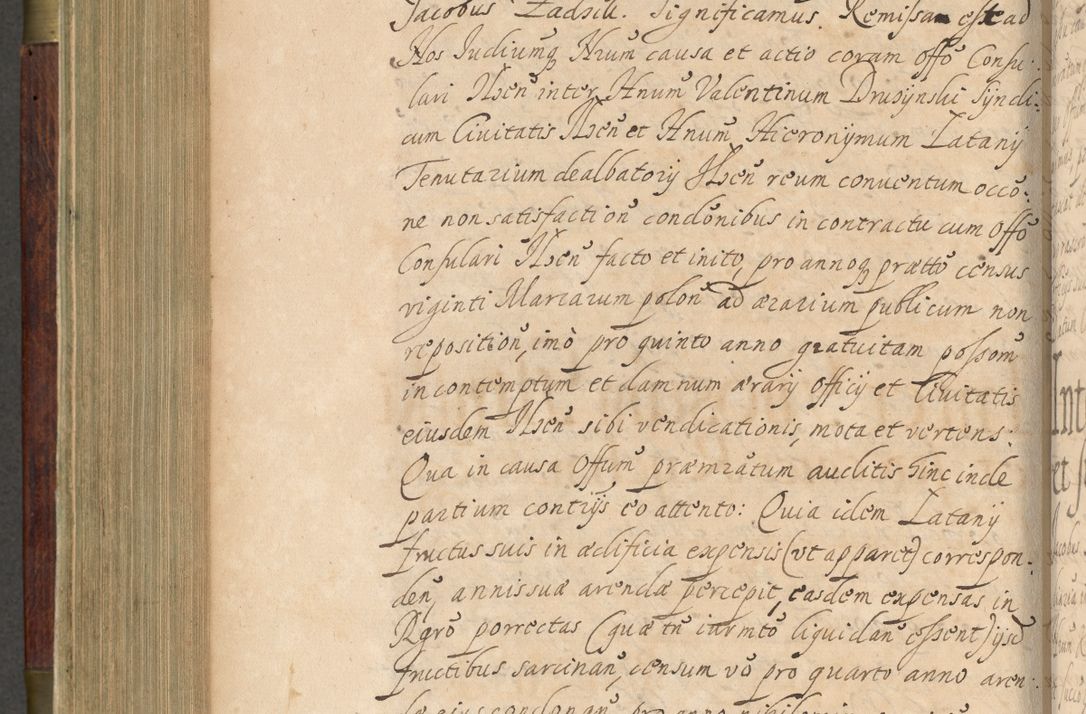 Jacobus Zadzik. Significamus. Remissam esse ad
Nos Judiumq Nrum causa et actio coram offō Consu-
lari Ilsen̄ inter Hnum̄ Valentinum Druzÿnski Sÿndi-
cum Ciuitatis Ilsen̄ et Hnum̄ Hieronÿmum Latanÿ
Tenutarium dealbatorÿ Ilsen̄ reum conuentum occō-
ne non satisfaction̄ condōnibus in contractu cum offō
Consulari Ilsen̄ facto et inito, pro annoq prættō census
viginti Marcarum polon̄ ad ærarium publicum non
reposition̄, imò pro quinto anno gratuitam possom̄
in contemptum et damnum ærarÿ officÿ et Ciuitatis
eiusdem Ilsen̄ sibi vendicationis, mota et vertens.
Qua in causa offum̄ præmrātum auditis hinc inde
partium contrījs eo attento: Quia idem Latanÿ
fructus suis in ædificia expensis (vt apparet) correspon-
den̄, annis suæ arendæ percepit, easdem expensas in
Rgrō porrectas (quæ tn̄ iurmtō liquidan̄ essent) ijsd
fructibus sarcinan̄, censum vō pro quarto anno aren-